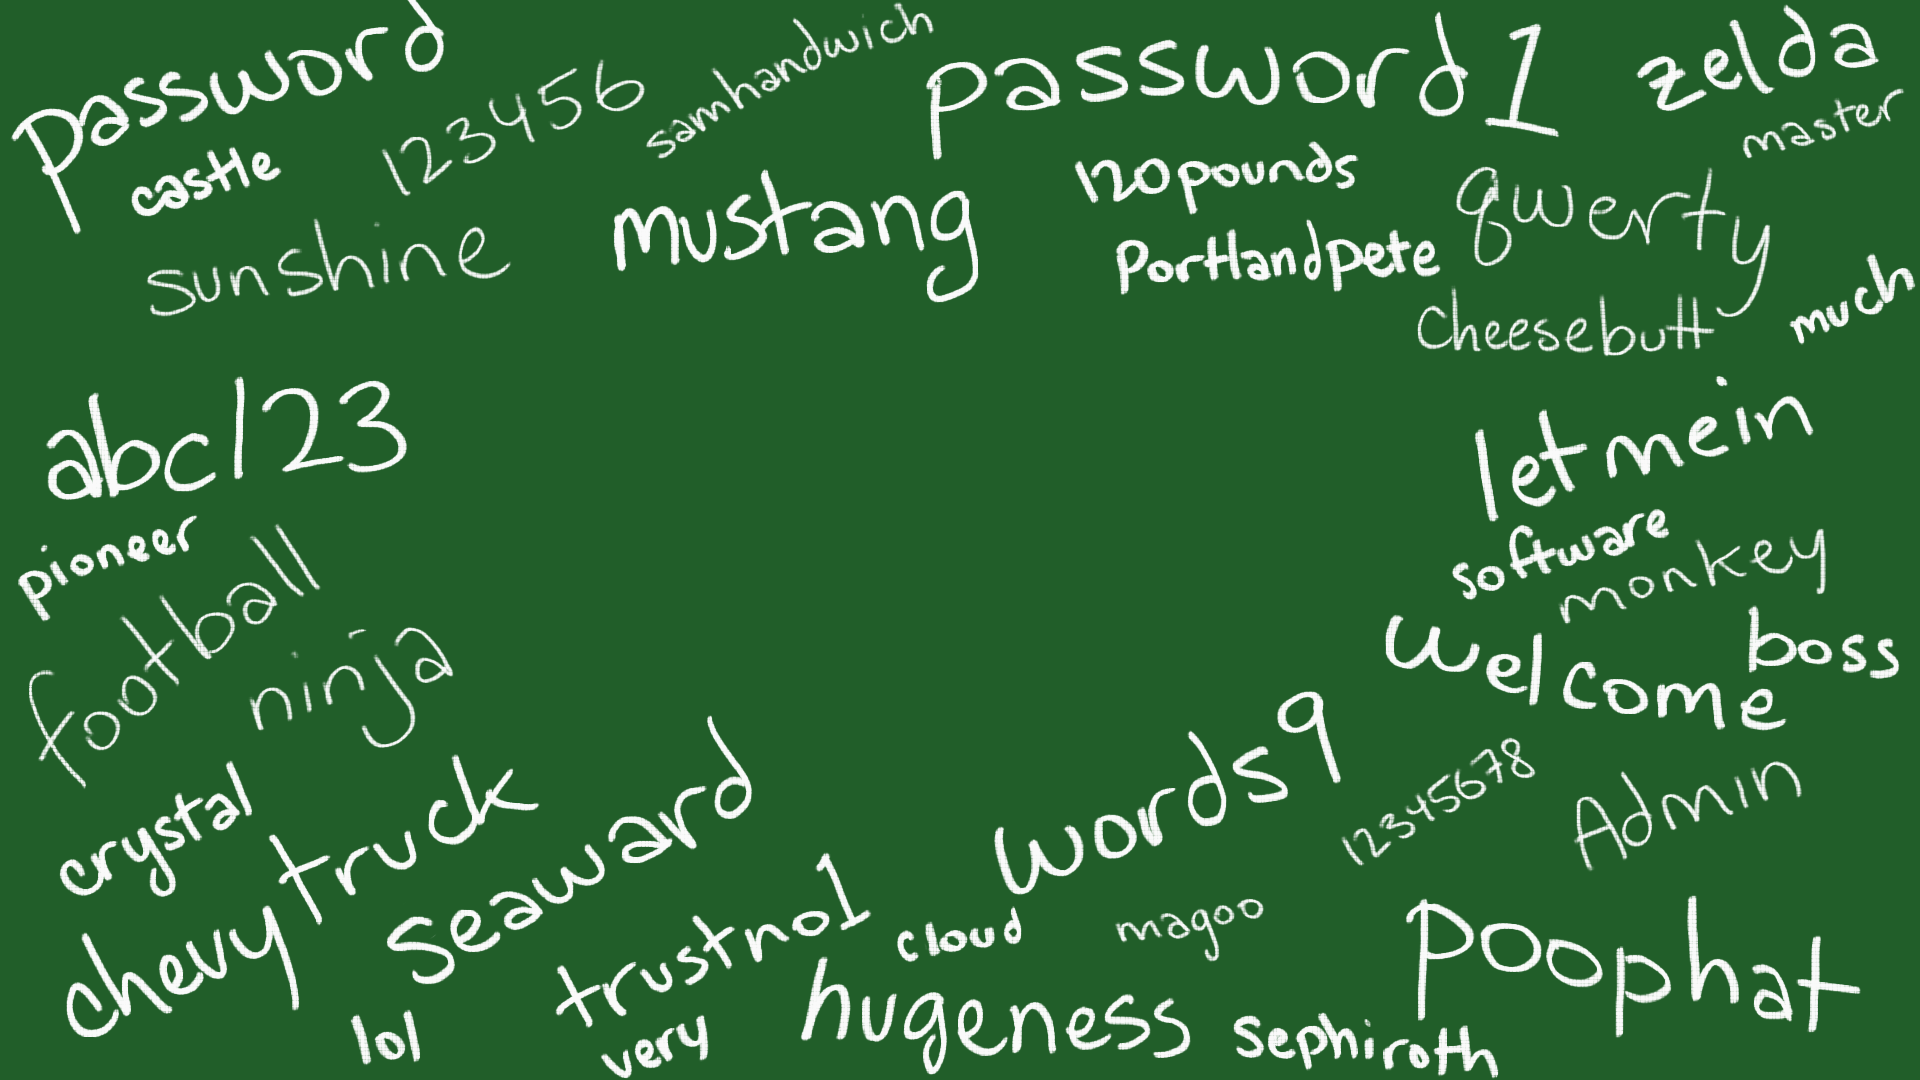 password
123456
samhandwich
password1
zelda
master
castle
sunshine
mustang
120pounds
qwerty
Portlandpete
cheesebutt
much
abc123
letmein
pioneer
software
monkey
football
ninja
welcome
boss
crystal
chevytruck
seaward
words9
12345678
Admin
trustno1
cloud
magoo
poophat
lol
very
hugeness
sephiroth